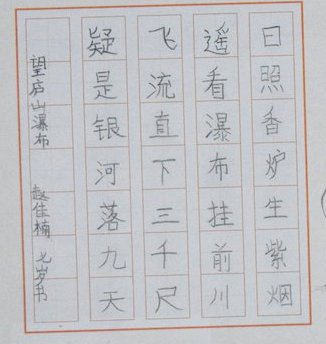 日照香炉生紫烟
遥看瀑布挂前川
飞流直下三千尺
疑是银河落九天
望庐山瀑布 赵佳楠 七岁书